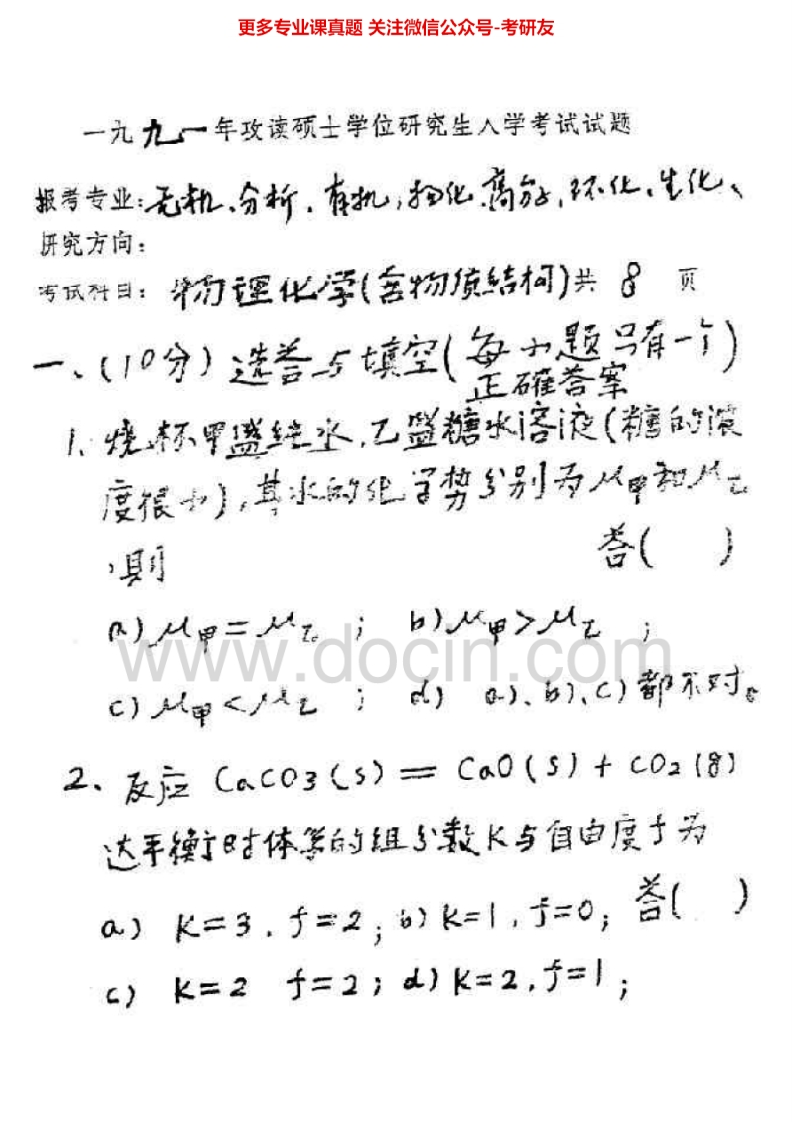 更多专业课真题 关注微信公众号-考研友
一九九一年攻读硕士学位研究生入学考试试题
报考专业:无机、分析、有机,物化、高分子,环化、生化、
研究方向:
考试科目: 物理化学(含物质结构)共 8 页
一、(10分)选答与填空(每小题只有一个
正确答案)
1. 烧杯甲盛纯水,乙盛糖水溶液(糖的浓
度很小),其水的化学势分别为μ甲和μ乙
,则 答( )
a) μ甲=μ乙 ; b) μ甲>μ乙 ;
www.docin.com
c) μ甲<μ乙 ; d) a)、b)、c)都不对。
2、反应 CaCO3(s) = CaO(s) + CO2(g)
达平衡时体系的组分数K与自由度f为
a) K=3, f=2; b) K=1, f=0; 答( )
c) K=2 f=2; d) K=2, f=1;